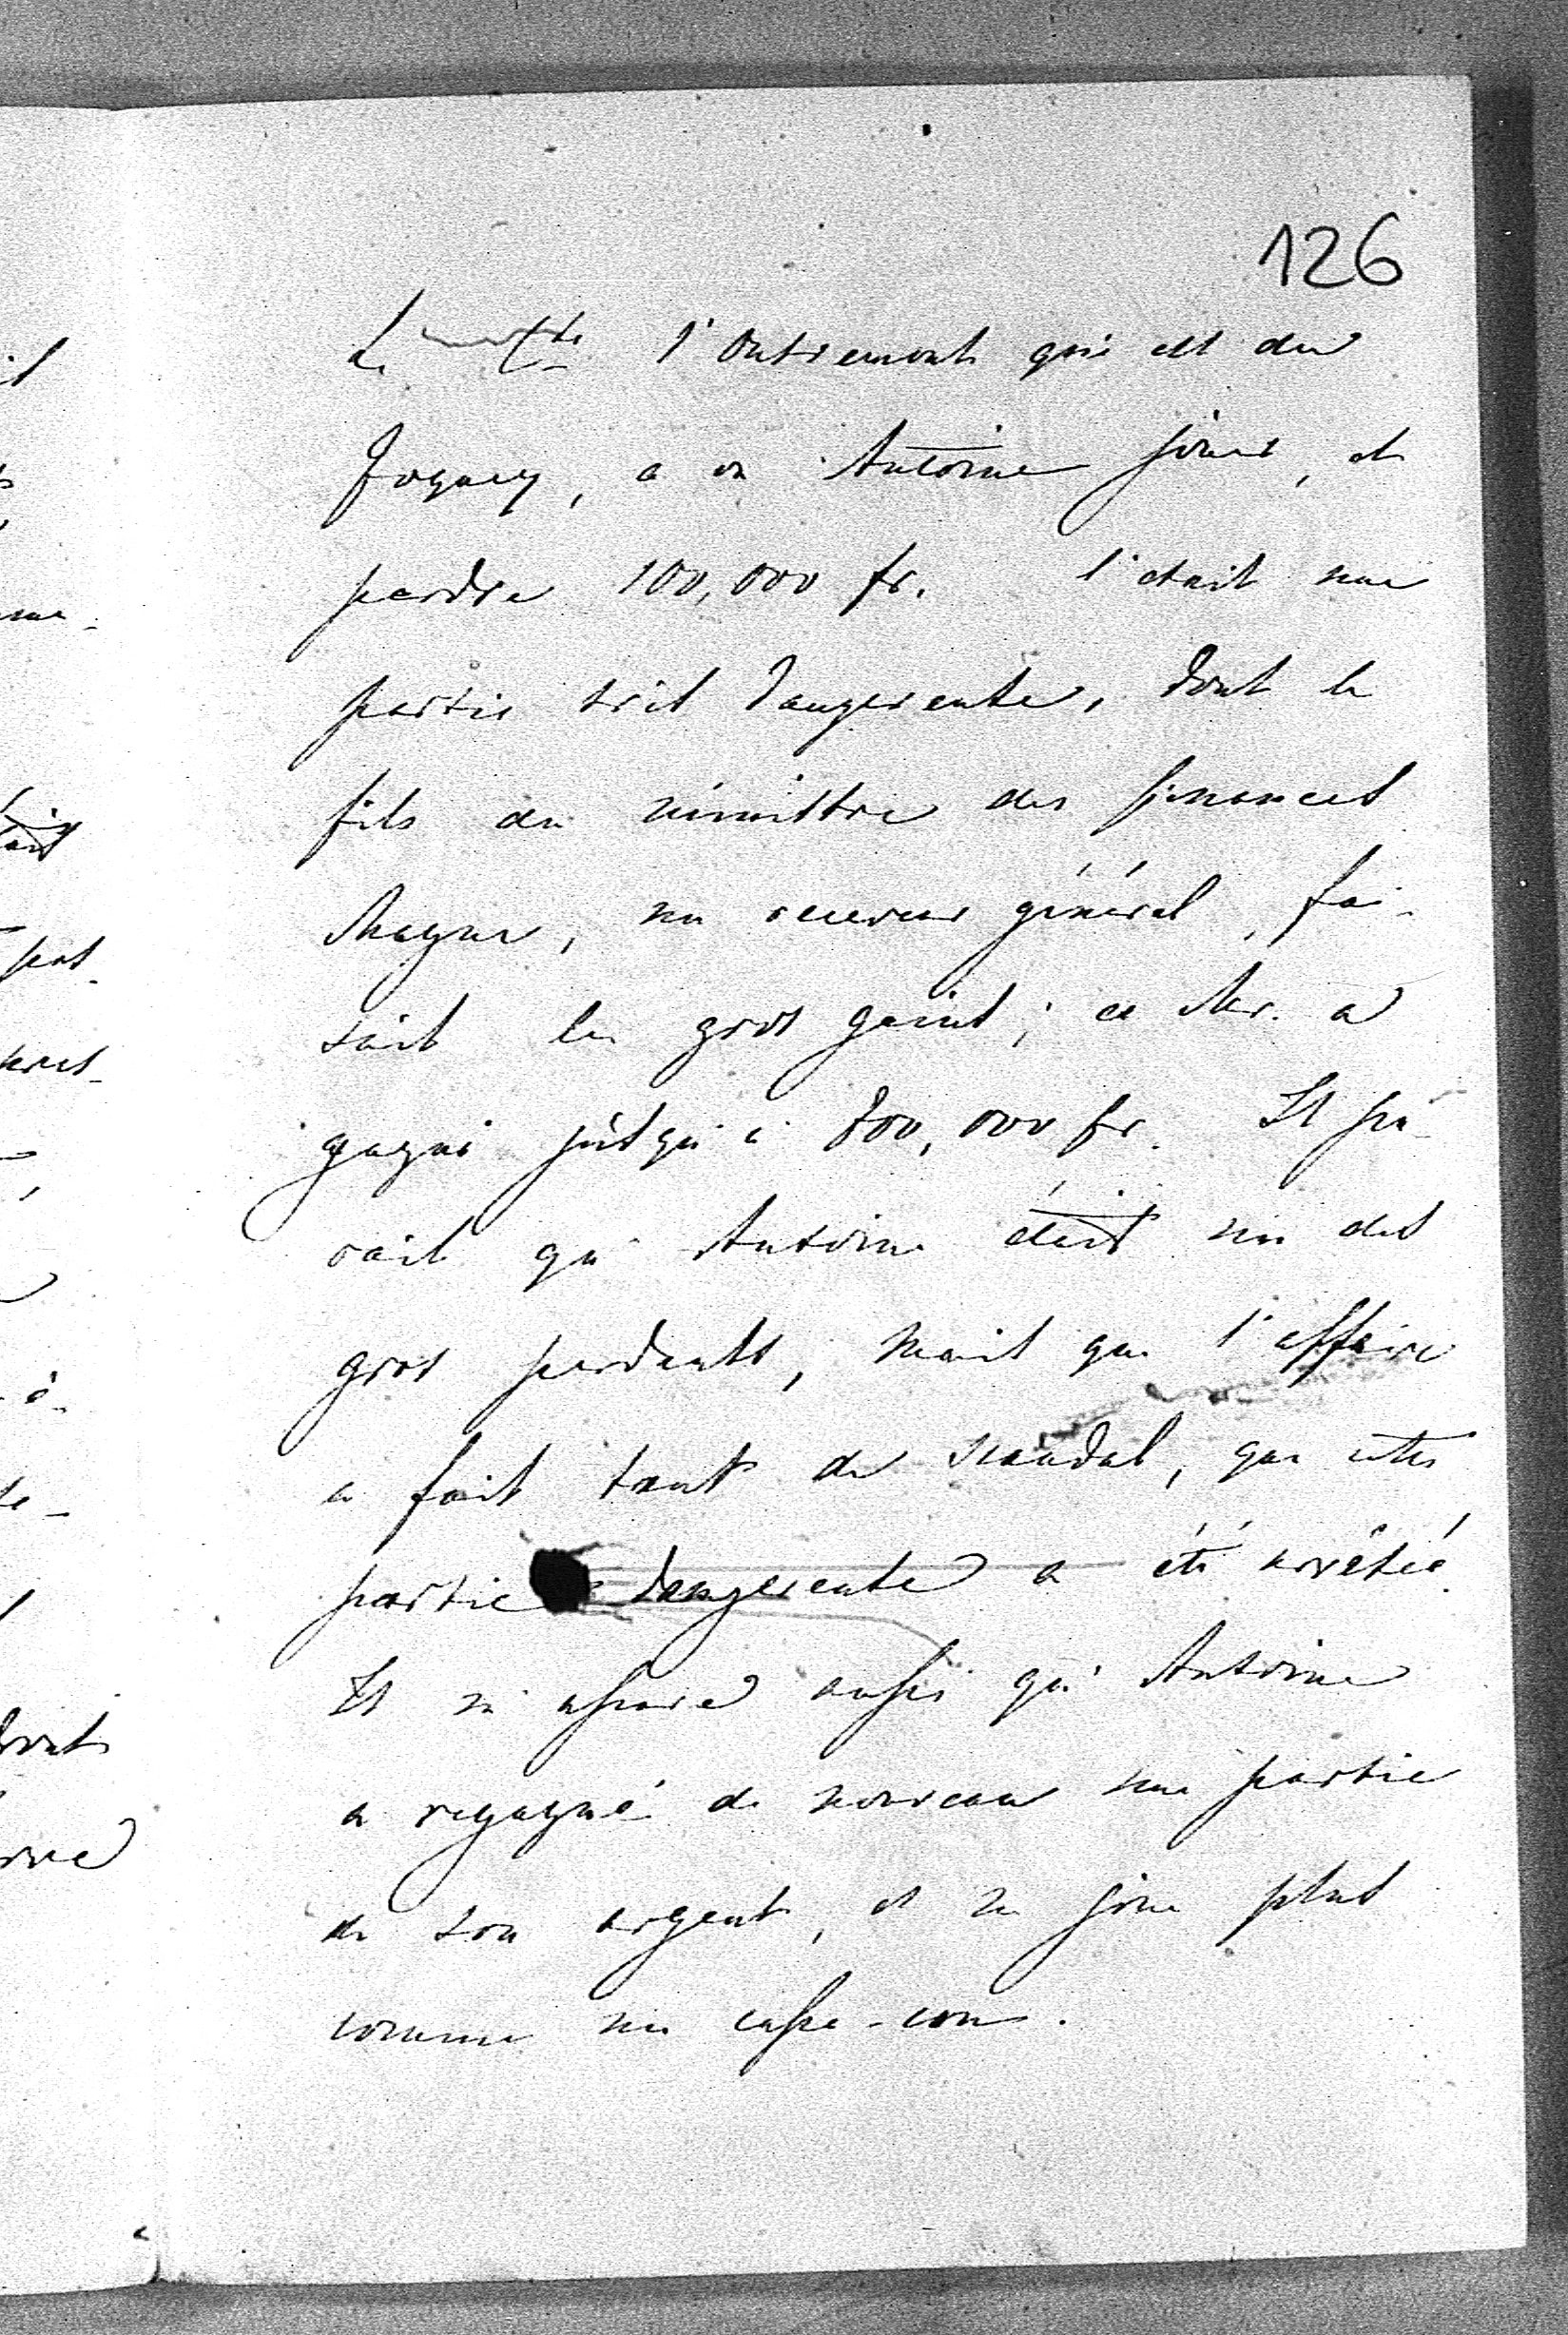 126
d'Outremont qui est du
Joquey, a vu Antoine jouer, et
perdre 100,000 fr. C'etait une
partie très dangereuse, dont le
fils du ministre des finances
Magne, un receveur général, fai-
sait les gros gains; ce Mr. a
gagné jusqu'à 800,000 fr. Il pa-
rait qu'Antoine était un des
gros perdants, mais que l'affaire
a fait tant de scandal, que cette
partie dangereuse a été arrêtée.
Il m'assure aussi qu'Antoine
a regagné de nouveau une partie
de son argent, et ne joue plus
comme un casse-cou.